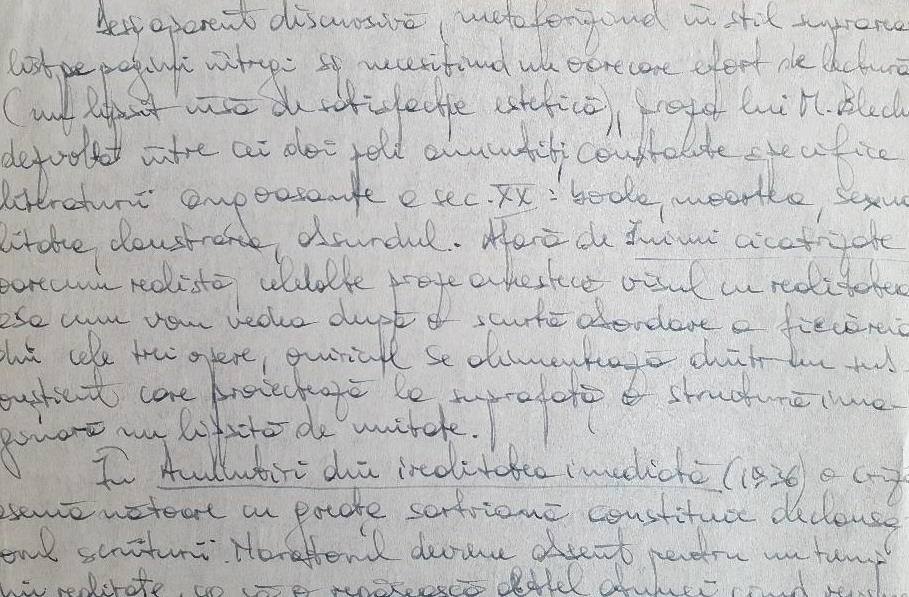 Deși aparent discursivă, metaforizând în stil suprarea
list pe pagini întregi și necesitând un oarecare efort de lectură
(nu lipsit însă de satisfacție estetică), proza lui M. Blech
dezvoltă între cei doi poli amintiți constante specifice
literaturii angoasante a sec. XX: boala, moartea, sexua
litatea, claustrarea, absurdul. Afară de Inimi cicatrizate
oarecum realistă, celelalte proze amestecă visul cu realitatea
așa cum vom vedea după o scurtă abordare a fiecăreia
din cele trei opere, oniricul se alimentează dintr-un sub
conștient care proiectează la suprafață o structură ima-
ginară nu lipsită de unitate.
În Amintiri din irealitatea imediată (1936) o criză
asemănătoare cu greața sartriană constituie declanșa
orul scriiturii. Naratorul devine absent pentru un timp
din realitate, ca să o regăsească astfel atunci când